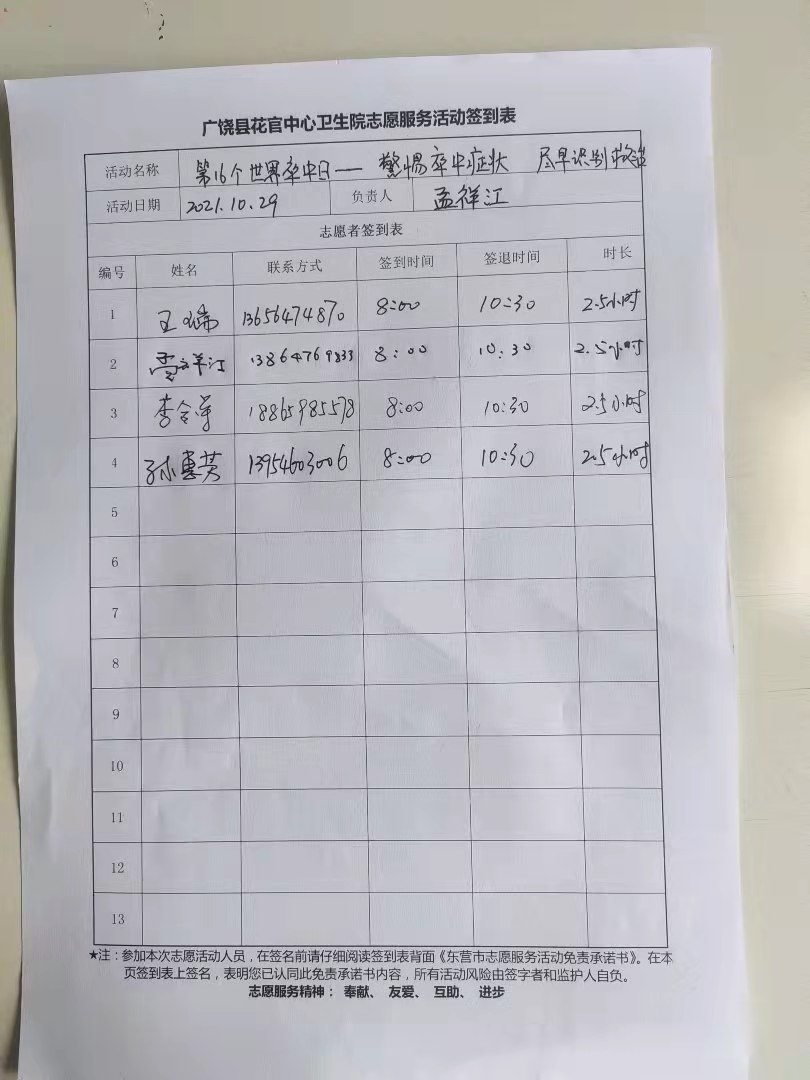 广饶县花官中心卫生院志愿服务活动签到表
活动名称 第16个世界卒中日——警惕卒中症状 尽早识别救治
活动日期 2021.10.29 负责人 孟祥江
志愿者签到表
编号 姓名 联系方式 签到时间 签退时间 时长
1 王瑞 13656474870 8:00 10:30 2.5小时
2 13864769833 8:00 10:30 2.5小时
3 李会军 18865985578 8:00 10:30 2.5小时
4 孙惠芳 13954603006 8:00 10:30 2.5小时
5
6
7
8
9
10
11
12
13
★注：参加本次志愿活动人员，在签名前请仔细阅读签到表背面《东营市志愿服务活动免责承诺书》。在本
页签到表上签名，表明您已认同此免责承诺书内容，所有活动风险由签字者和监护人自负。
志愿服务精神： 奉献、 友爱、 互助、 进步